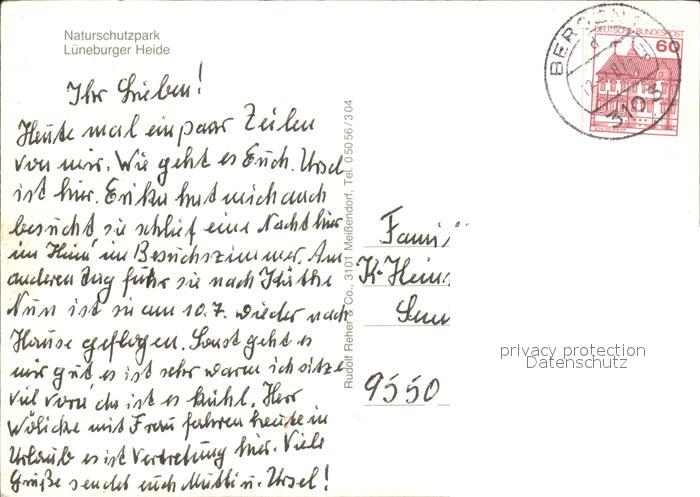 Naturschutzpark
Lüneburger Heide
Ihr Lieben!
Heute mal ein paar Zeilen
von mir. Wie geht es Euch. Ursel
ist hier. Erika hat mich auch
besucht sie schlief eine Nacht hier
im Heim im Besuchszimmer. Am
anderen Tag fuhr sie nach Käthe
Nun ist sie am 10.7. wieder nach
Hause geflogen. Sonst geht es
mir gut, es ist sehr warm ich sitze
viel vorn da ist es kühl. Herr
Wölicke mit Frau fahren heute in
Urlaub es ist Vertretung hier. Viele
Grüße sendet euch Mutti u. Ursel!
Rudolf Reher & Co., 3101 Meißendorf, Tel. 0 50 56 / 3 04
DEUTSCHE BUNDESPOST
60
BERGEN
3103
Fami
K-Hein
9550
privacy protection
Datenschutz